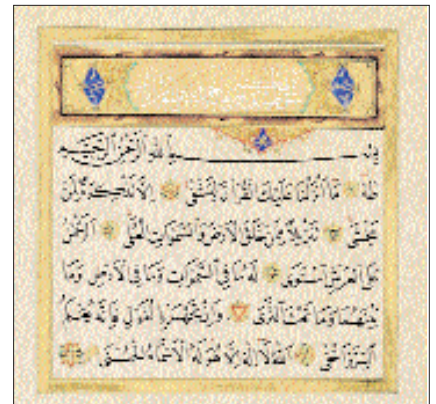 بسم الله الرحمن الرحيم
طه ما أنزلنا عليك القرآن لتشقى إلا تذكرة لمن
يخشى تنزيلا ممن خلق الأرض والسموات العلى الرحمن
على العرش استوى له ما في السموات وما في الأرض وما
بينهما وما تحت الثرى وإن تجهر بالقول فإنه يعلم
السر وأخفى الله لا إله إلا هو له الأسماء الحسنى